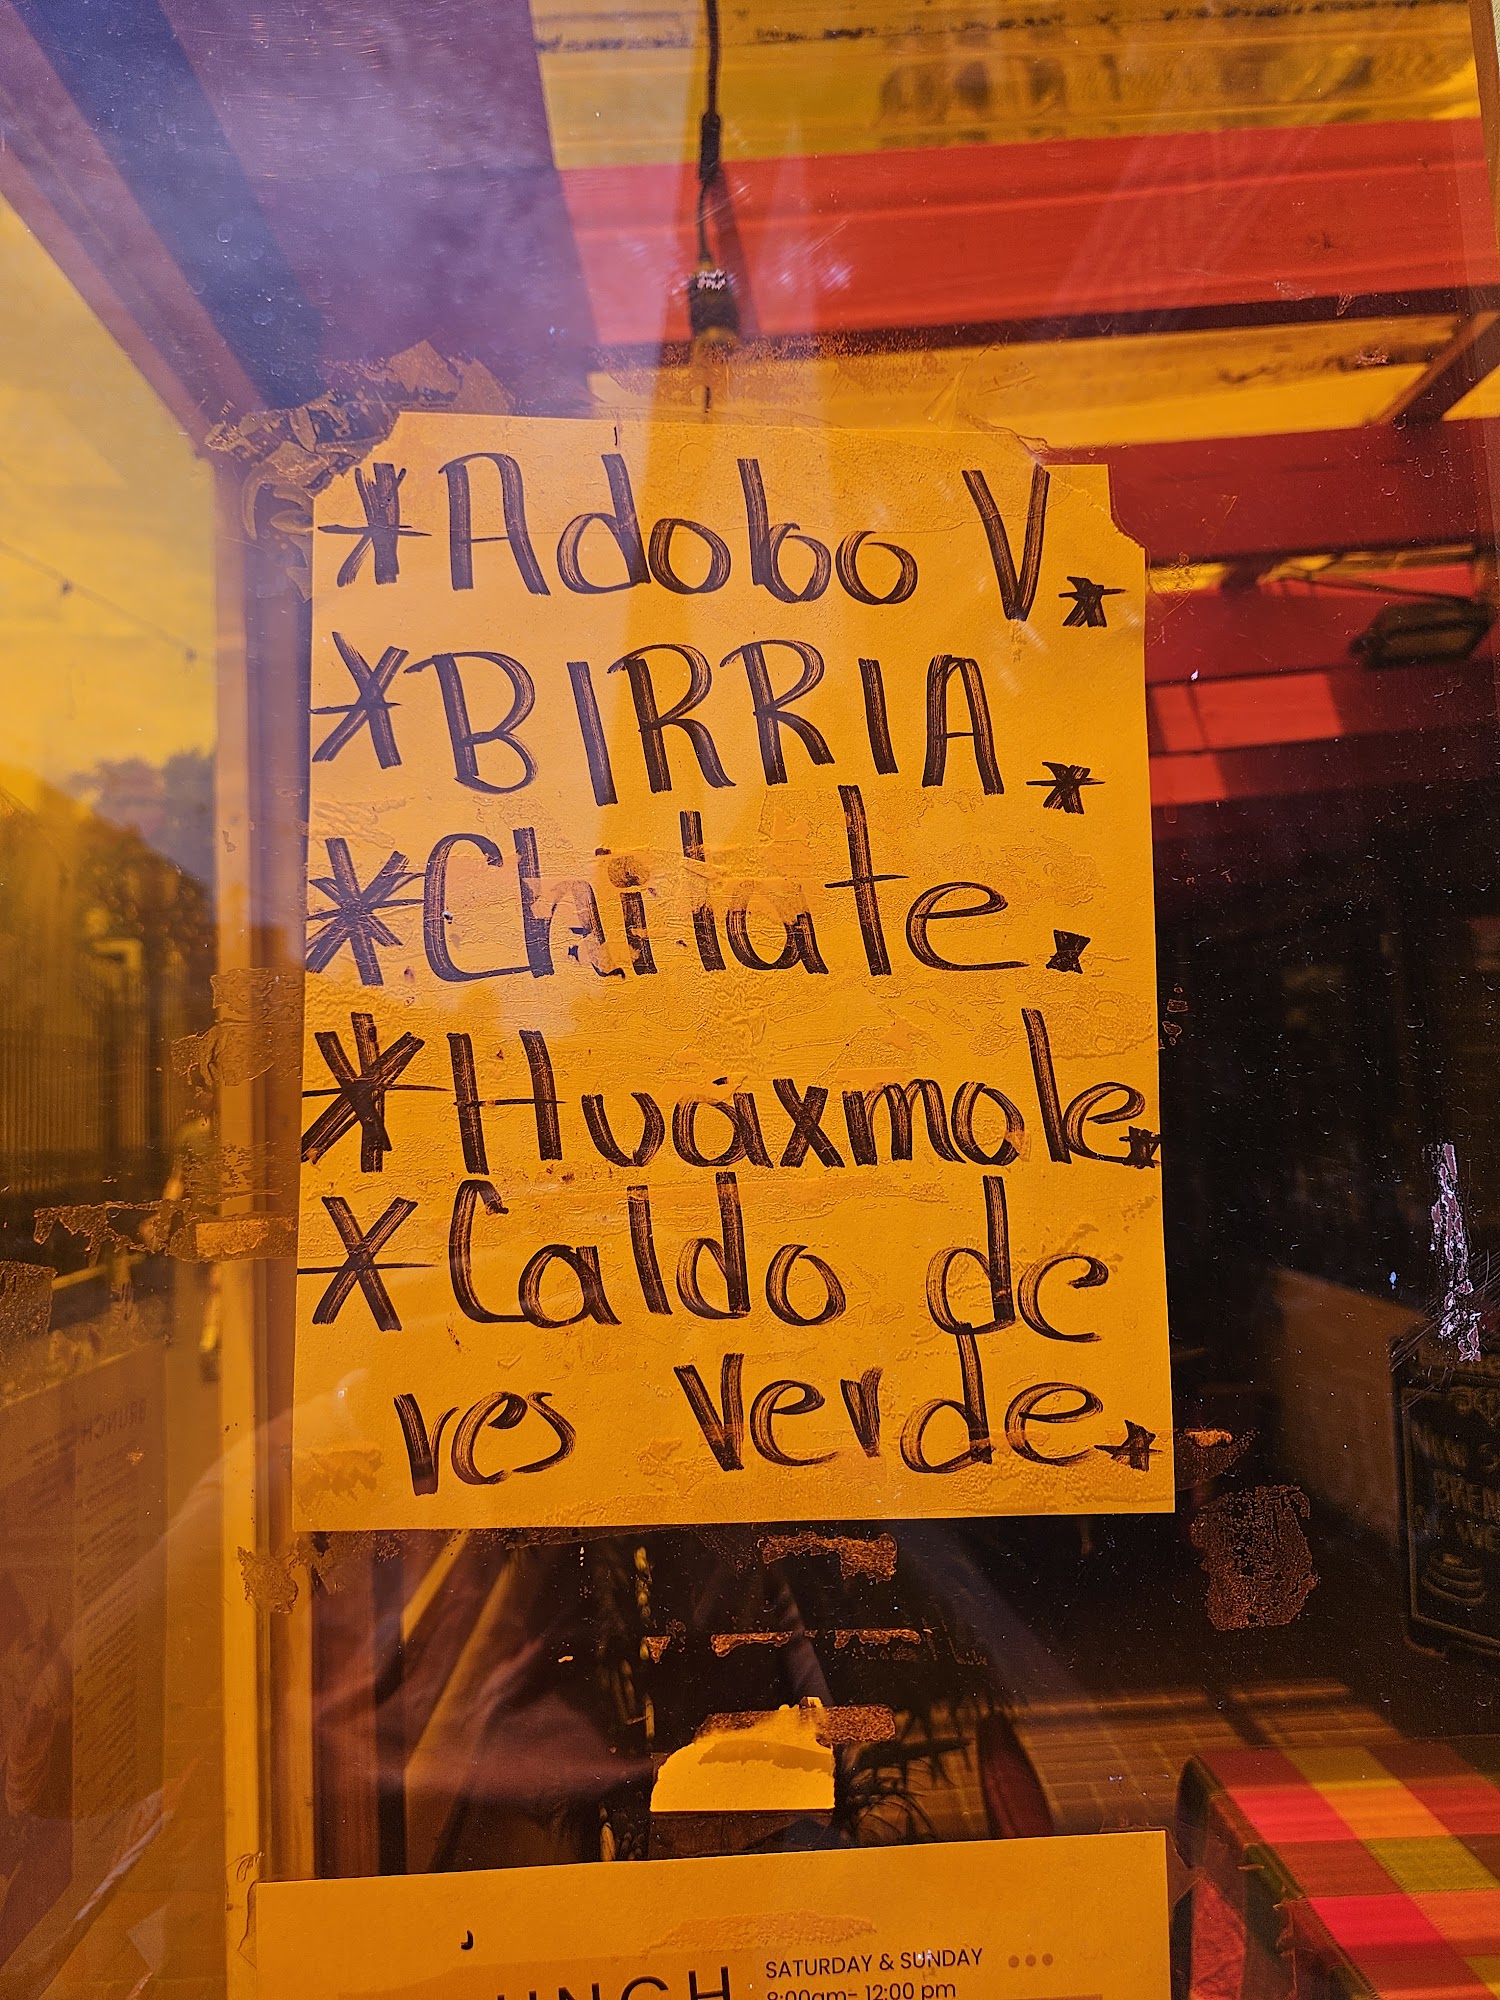 *Adobo V.*
*BIRRIA.*
*Chilate.*
*Huaxmole.*
*Caldo de
res Verde.*
SATURDAY & SUNDAY
8:00am- 12:00 pm